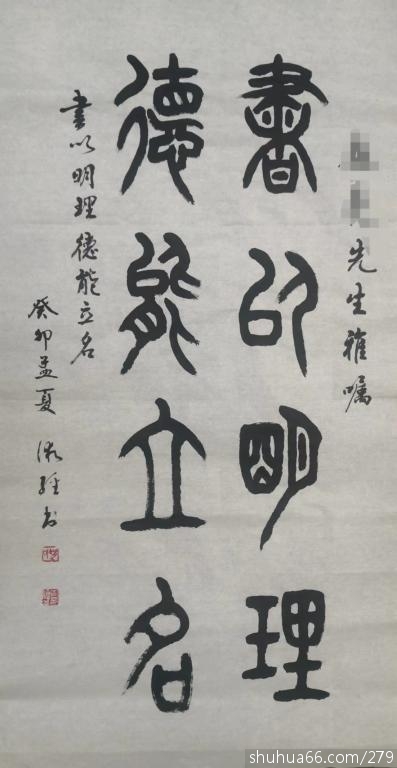 先生雅嘱
書以明理
德能立名
書以明理德能立名
癸卯孟夏
shuhua66.com/279